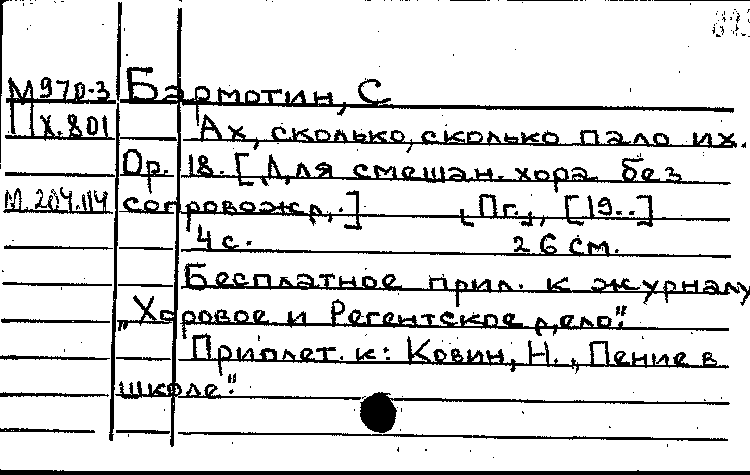 М970-3 Бармотин, С
П X.801 Ах, сколько, сколько пало их.
Op. 18. [Для смешан. хора без
М.204.114 сопровожд.] [Пг., [19..]
4 с. 26 см.
Бесплатное прил. к журналу
„Хоровое и Регентское дело".
Приплет. к: Ковин, Н. „Пение в
школе".